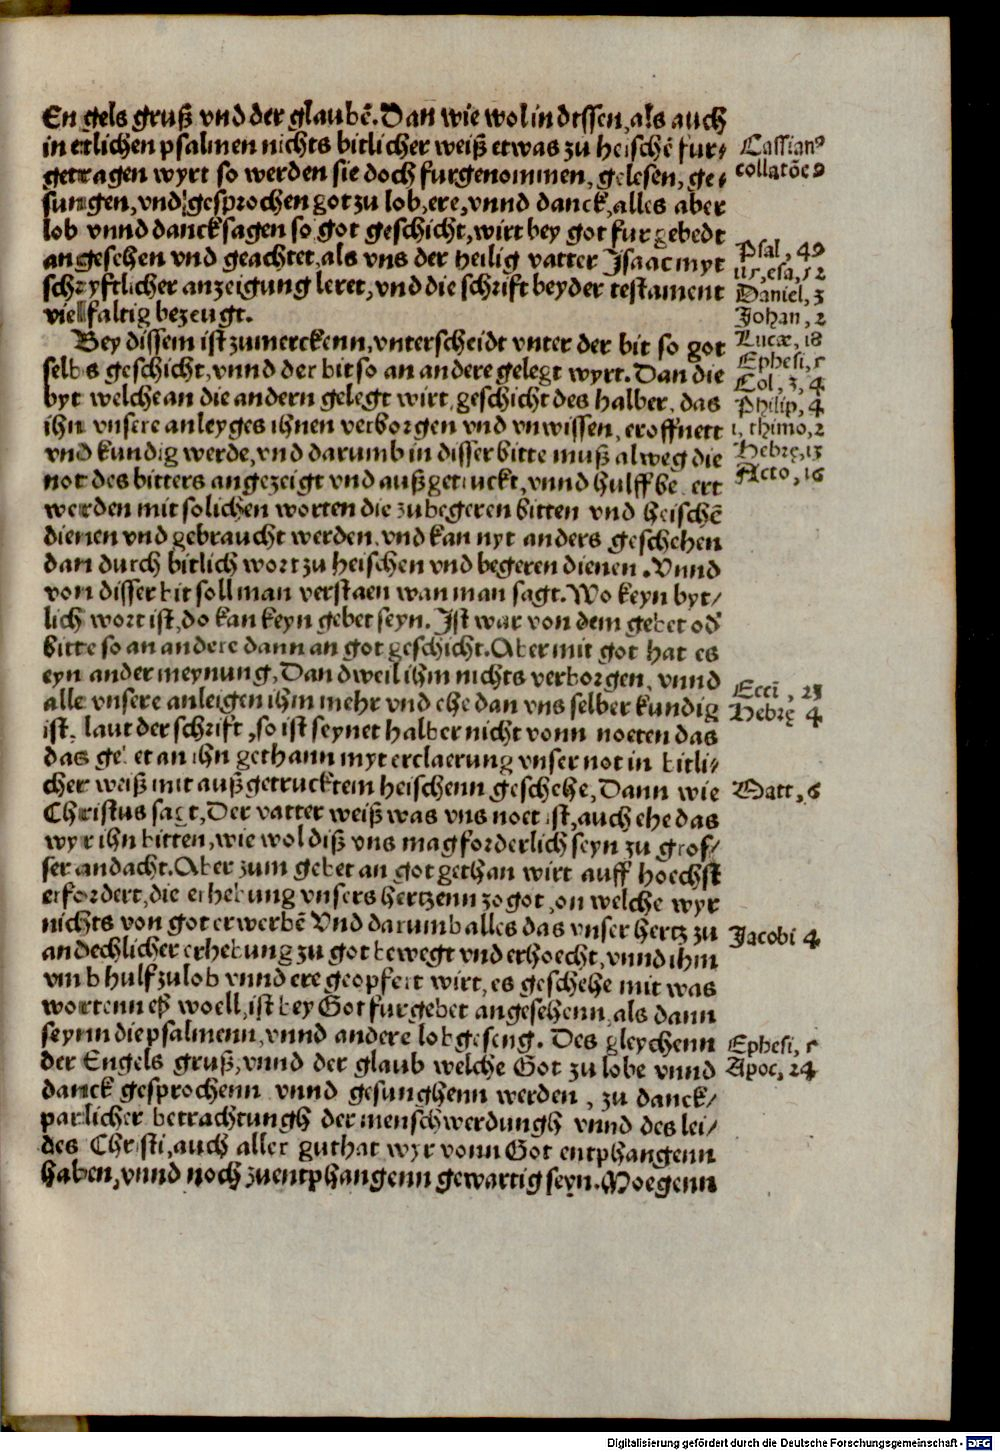 En gels gruß vnd der glaubē. Dan wie wol in dissen, als auch
in etlichen psalmen nichts bitlicher weiß etwas zu heischē fur-
getragen wyrt so werden sie doch furgenommen, gelesen, ge-
sungen, vnd gesprochen got zu lob, ere, vnnd danck, alles aber
lob vnnd dancksagen so got geschicht, wirt bey got fur gebedt
angesehen vnd geachtet, als vns der heilig vatter Isaac myt
schryftlicher anzeigung leret, vnd die schrift beyder testament
vielfaltig bezeugt.
Bey dissem ist zumerckenn, vnterscheidt vnter der bit so got
selbs geschicht, vnnd der bit so an andere gelegt wyrt. Dan die
byt welche an die andern gelegt wirt, geschicht des halber, das
ihn vnsere anleyges ihnen verborgen vnd vnwissen, eroffnett
vnd kundig werde, vnd darumb in disser bitte muß alweg die
not des bitters angezeigt vnd außgetruckt, vnnd hulff be ert
werden mit solichen worten die zubegeren bitten vnd heischē
dienen vnd gebraucht werden, vnd kan nyt anders geschehen
dan durch bitlich wort zu heischen vnd begeren dienen. Vnnd
von disser bit soll man verstaen wan man sagt. Wo keyn byt/
lich wort ist, do kan keyn gebet seyn. Ist war von dem gebet od̕
bitte so an andere dann an got geschicht. Aber mit got hat es
eyn ander meynung, Dan dweil ihm nichts verborgen, vnnd
alle vnsere anleigen ihm mehr vnd ehe dan vns selber kundig
ist, laut der schrift, so ist seynet halber nicht vonn noeten das
das gebet an ihn gethann myt erclaerung vnser not in bitli-
cher weiß mit außgetrucktem heischenn geschehe, Dann wie
Christus sagt, Der vatter weiß was vns noet ist, auch ehe das
wyr ihn bitten, wie wol diß vns mag forderlich seyn zu gros/
ser andacht. Aber zum gebet an got gethan wirt auff hoechst
erfordert, die erhebung vnsers hertzenn zo got, on welche wyr
nichts von got erwerbē Vnd darumb alles das vnser hertz zu
andechlicher erhebung zu got bewegt vnd erhoecht, vnnd ihm
vmb hulf zu lob vnnd ere geopfert wirt, es geschehe mit was
wortenn eß woell, ist bey Got fur gebet angesehenn, als dann
seynn die psalmenn, vnnd andere lobgeseng. Des gleychenn
der Engels gruß, vnnd der glaub welche Got zu lobe vnnd
danck gesprochenn vnnd gesunghenn werden, zu danck/
parlicher betrachtungh der menschwerdungh vnnd des lei/
des Christi, auch aller guthat wyr vonn Got entphangenn
haben, vnnd noch zu entphangenn gewartig seyn. Moegenn
Cassianꝰ
collatōe 9
Psal, 49
Daniel, 3
Johan, 2
Lucæ, 18
Ephesi, 5
Col, 3, 4
Philip, 4
1, thimo, 2
Hebrę, 13
Acto, 16
Ecci, 23
Hebrę 4
Matt, 6
Jacobi 4
Ephesi, 5
Apoc, 14
Digitalisierung gefördert durch die Deutsche Forschungsgemeinschaft - DFG